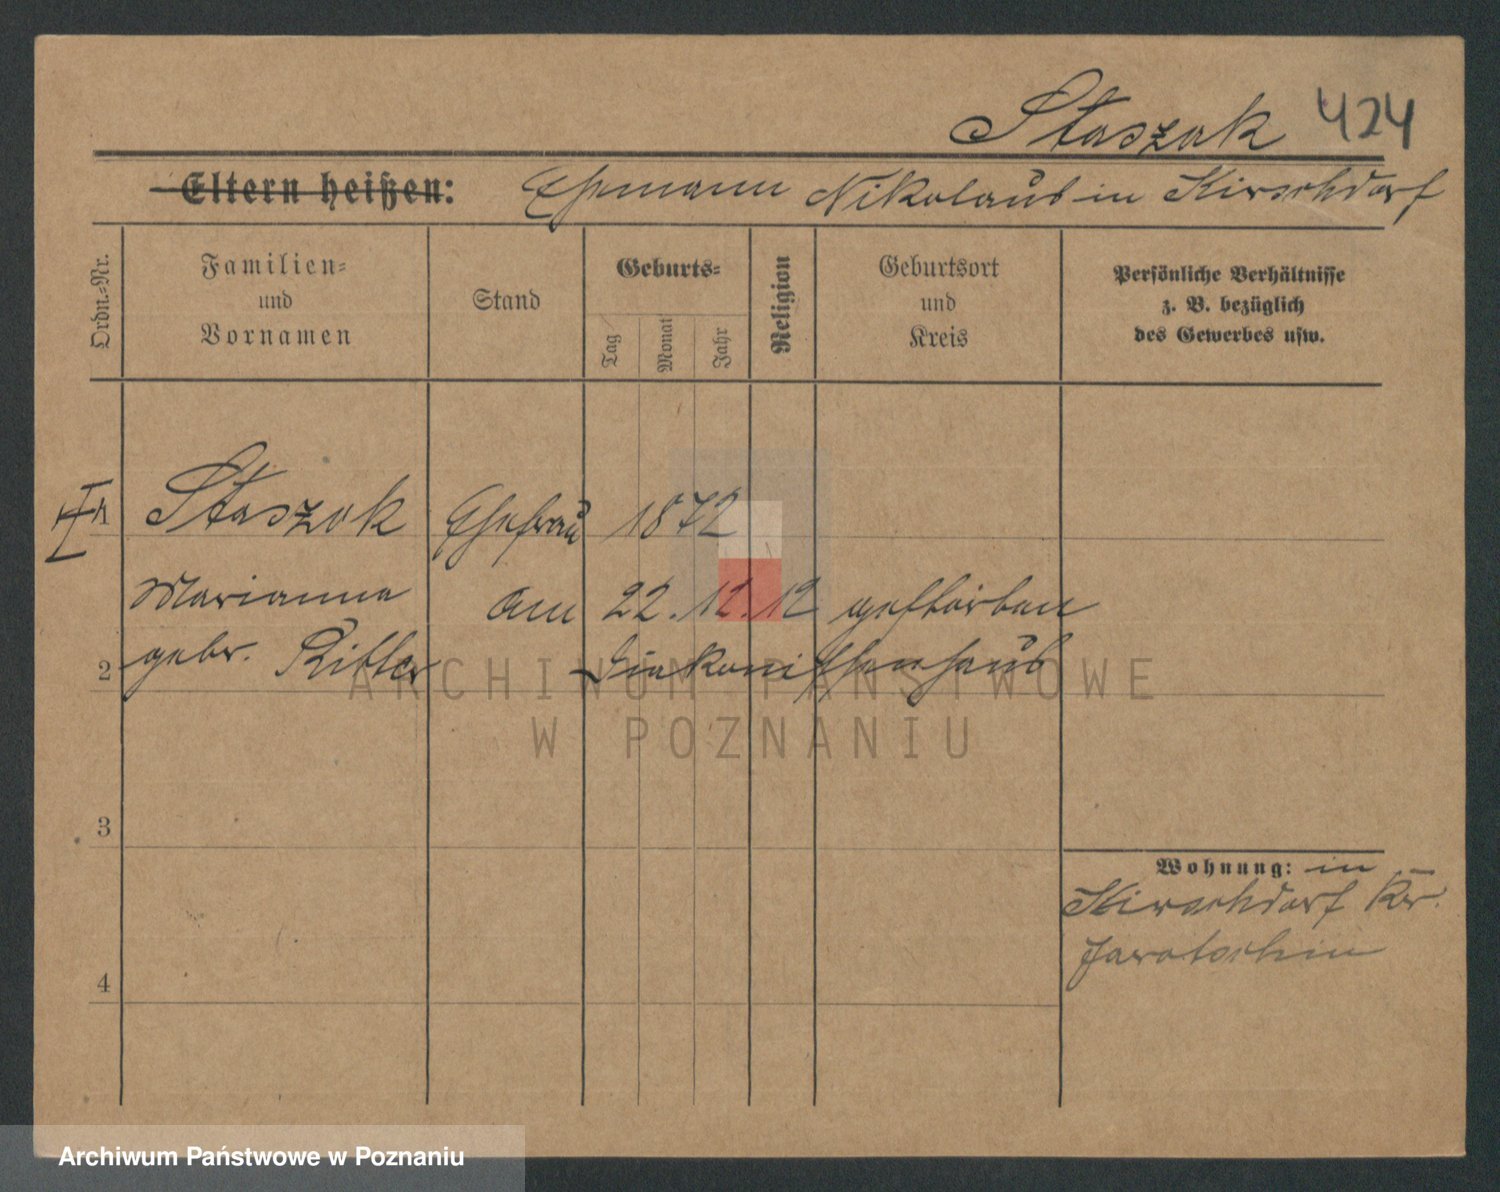 Staszak 424
Eltern heißen: Ehemann Nikolaus in Kirschdorf
Ordn.-Nr.
Familien-
und
Vornamen
Stand
Geburts-
Tag
Monat
Jahr
Religion
Geburtsort
und
Kreis
Persönliche Verhältnisse
z. B. bezüglich
des Gewerbes usw.
1 Staszak Ehefrau 1872
Marianna am 22.12.12 gestorben
2 gebr. Diakonissenhaus
3
4
Wohnung: in
Kirschdorf Kr.
Jarotschin
ARCHIWUM PAŃSTWOWE
W POZNANIU
Archiwum Państwowe w Poznaniu